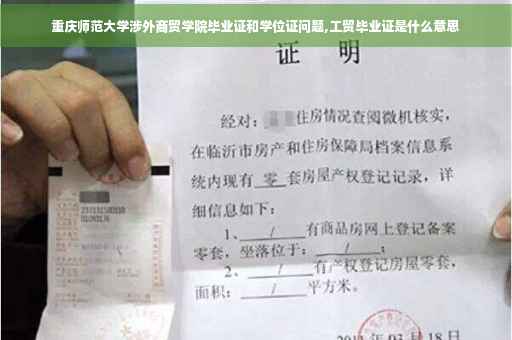 重庆师范大学涉外商贸学院毕业证和学位证问题,工贸毕业证是什么意思
证 明
经对: 住房情况查阅微机核实,
在临沂市房产和住房保障局档案信息系
统内现有 零 套房屋产权登记记录, 详
细信息如下:
1、 / 有商品房网上登记备案
零套, 坐落位于: / ;
2、 / 有产权登记房屋零套,
面积: / 平方米。
03月18日